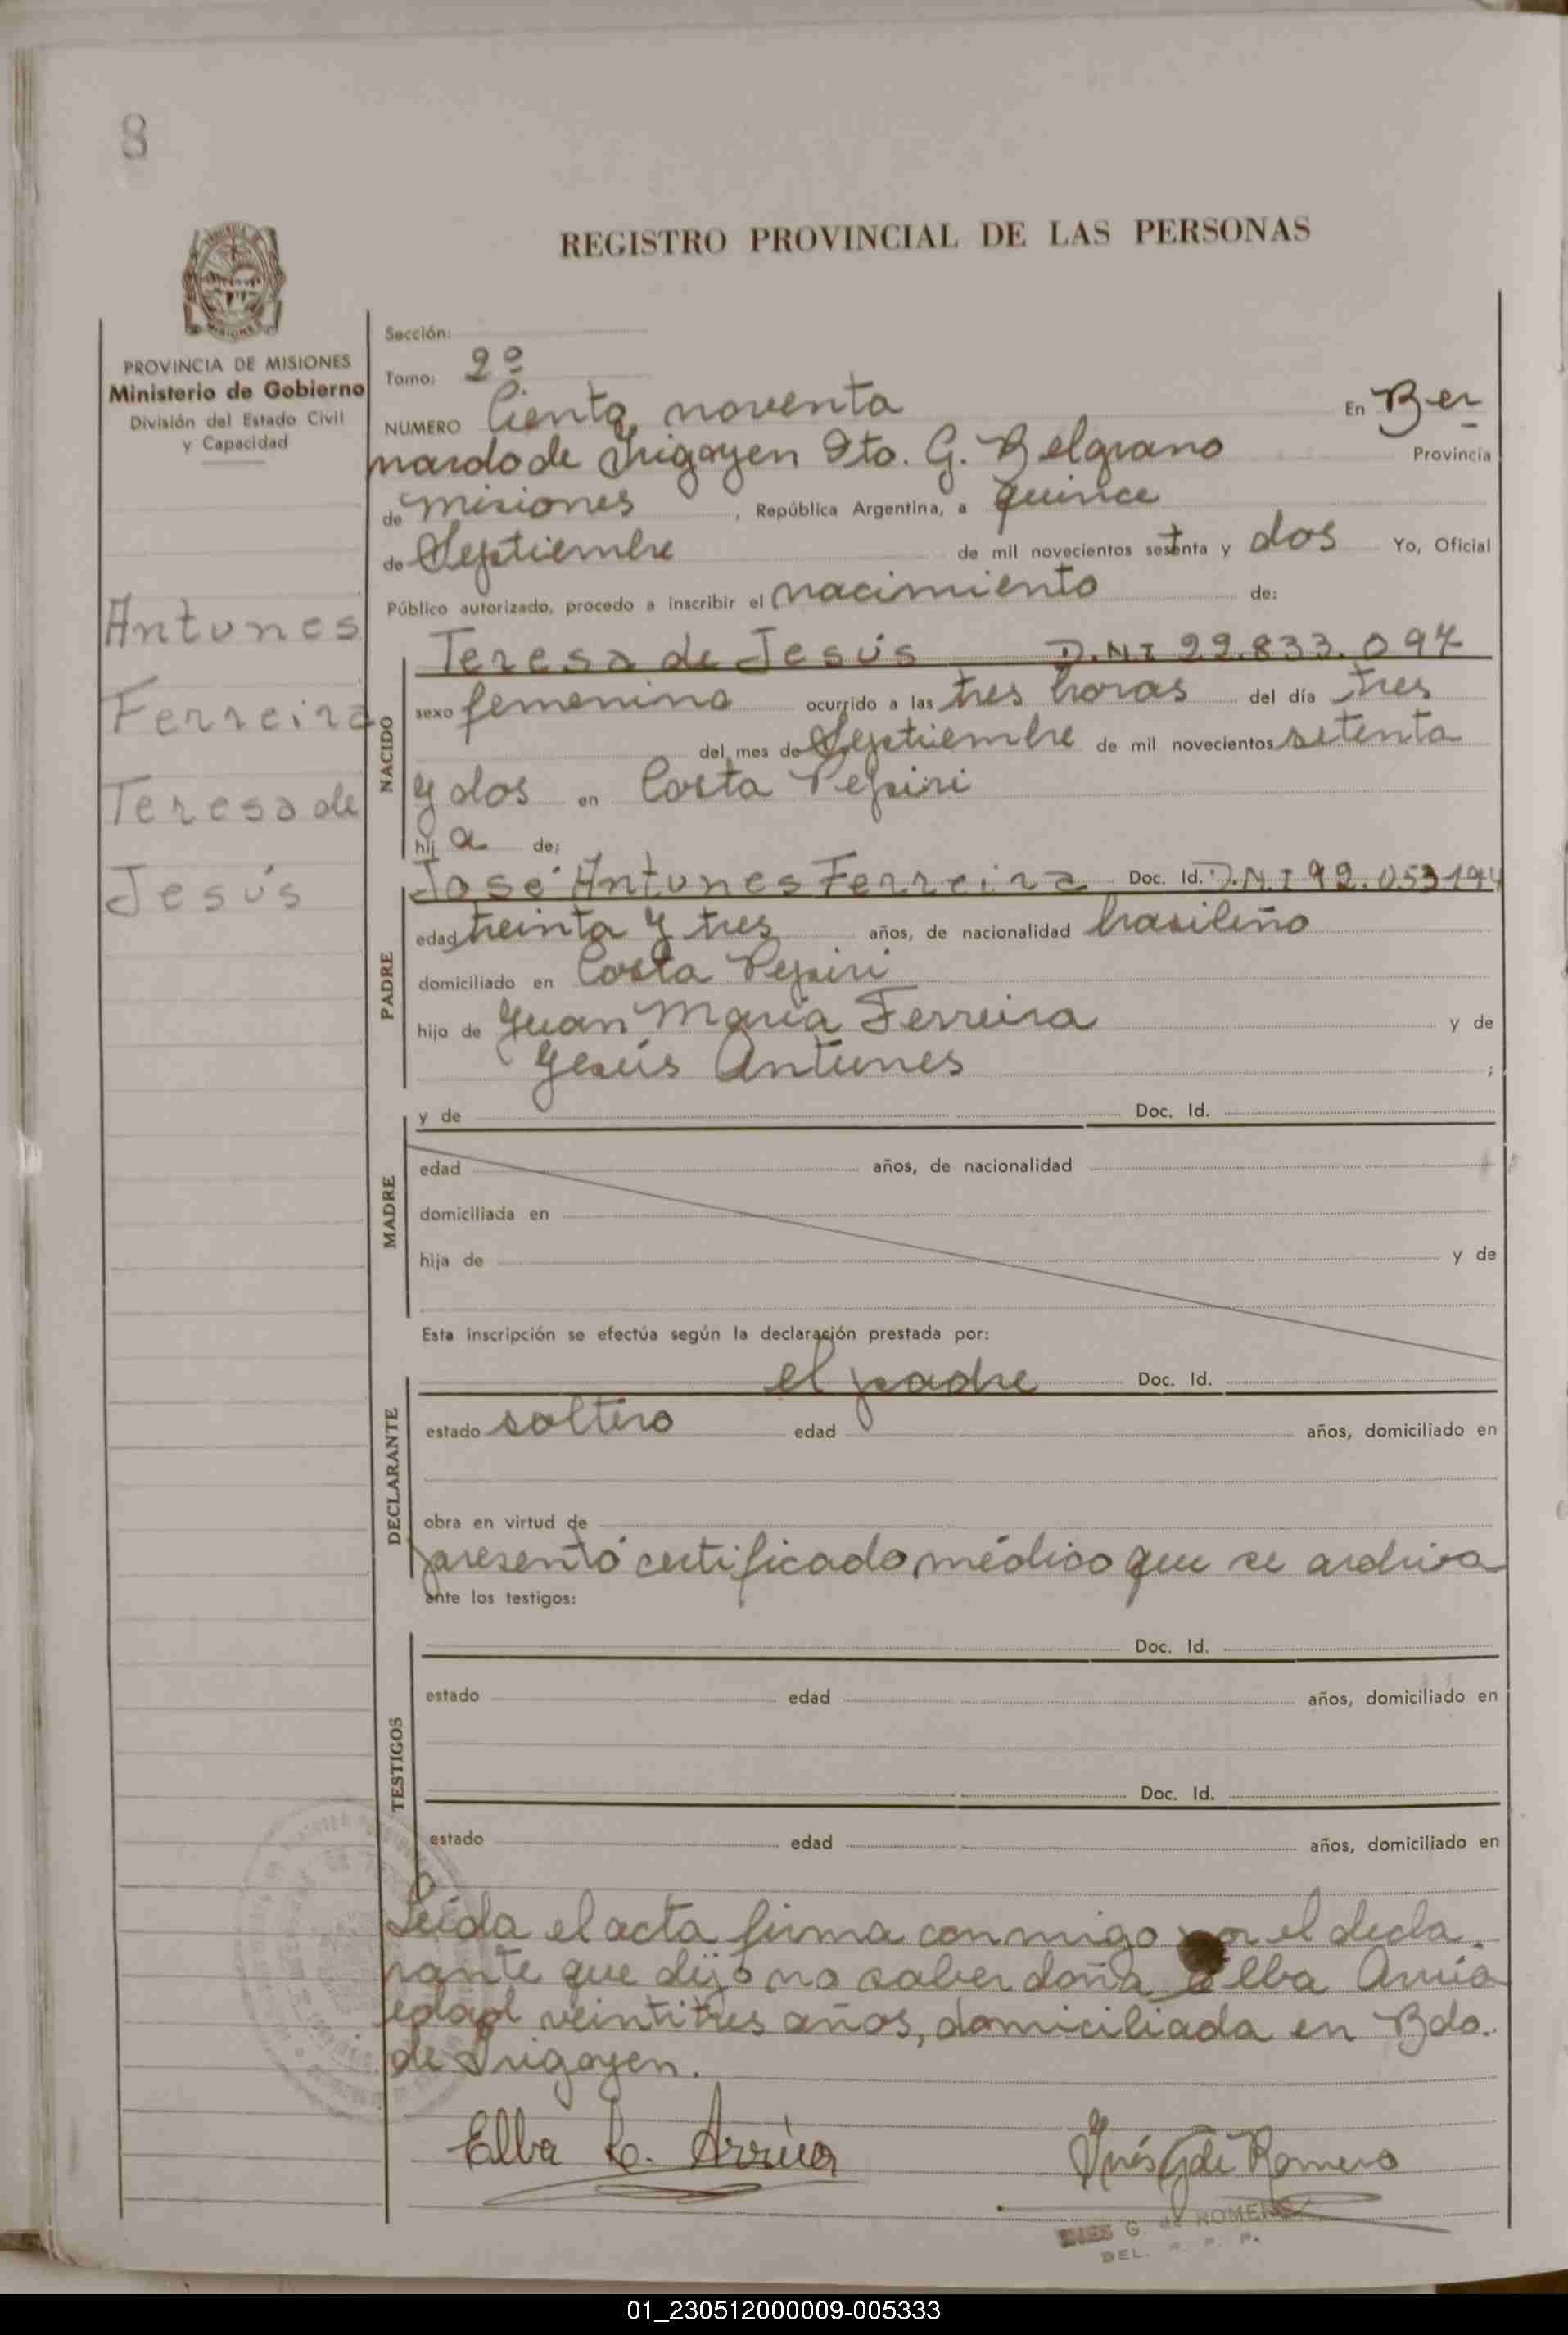 8
REGISTRO PROVINCIAL DE LAS PERSONAS
PROVINCIA DE MISIONES
Ministerio de Gobierno
División del Estado Civil
y Capacidad
Antunes
Ferreira
Teresa de
Jesús
Sección:
Tomo: 2º
NUMERO Ciento noventa En Ber
nardo de Irigoyen Dto. G. Belgrano Provincia
de Misiones, República Argentina, a quince
de Septiembre de mil novecientos setenta y dos Yo, Oficial
Público autorizado, procedo a inscribir el nacimiento de:
NACIDO
Teresa de Jesús D.N.I 22.833.097
sexo femenino ocurrido a las tres horas del día tres
del mes de Septiembre de mil novecientos setenta
y dos en Costa Pepiri
hij a de:
PADRE
José Antunes Ferreira Doc. Id. D.N.I 92.053194
edad treinta y tres años, de nacionalidad brasileño
domiciliado en Costa Pepiri
hijo de Juan María Ferreira y de
Jesús Antunes ;
MADRE
y de Doc. Id.
edad años, de nacionalidad
domiciliada en
hija de y de
Esta inscripción se efectúa según la declaración prestada por:
DECLARANTE
el padre Doc. Id.
estado soltero edad años, domiciliado en
obra en virtud de
presentó certificado médico que se archiva
ante los testigos:
TESTIGOS
Doc. Id.
estado edad años, domiciliado en
Doc. Id.
estado edad años, domiciliado en
Leída el acta firma conmigo por el decla
rante que dijo no saber doña Elba Arrúa
edad veintitres años, domiciliada en Bdo.
de Irigoyen.
Elba R. Arrúa
Inés G de Romero
INES G. de ROMERO
DEL. R. P. P.
01_230512000009-005333